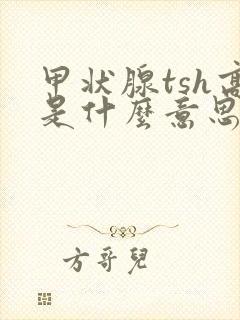 甲状腺tsh高
是什麼意思
方哥兒